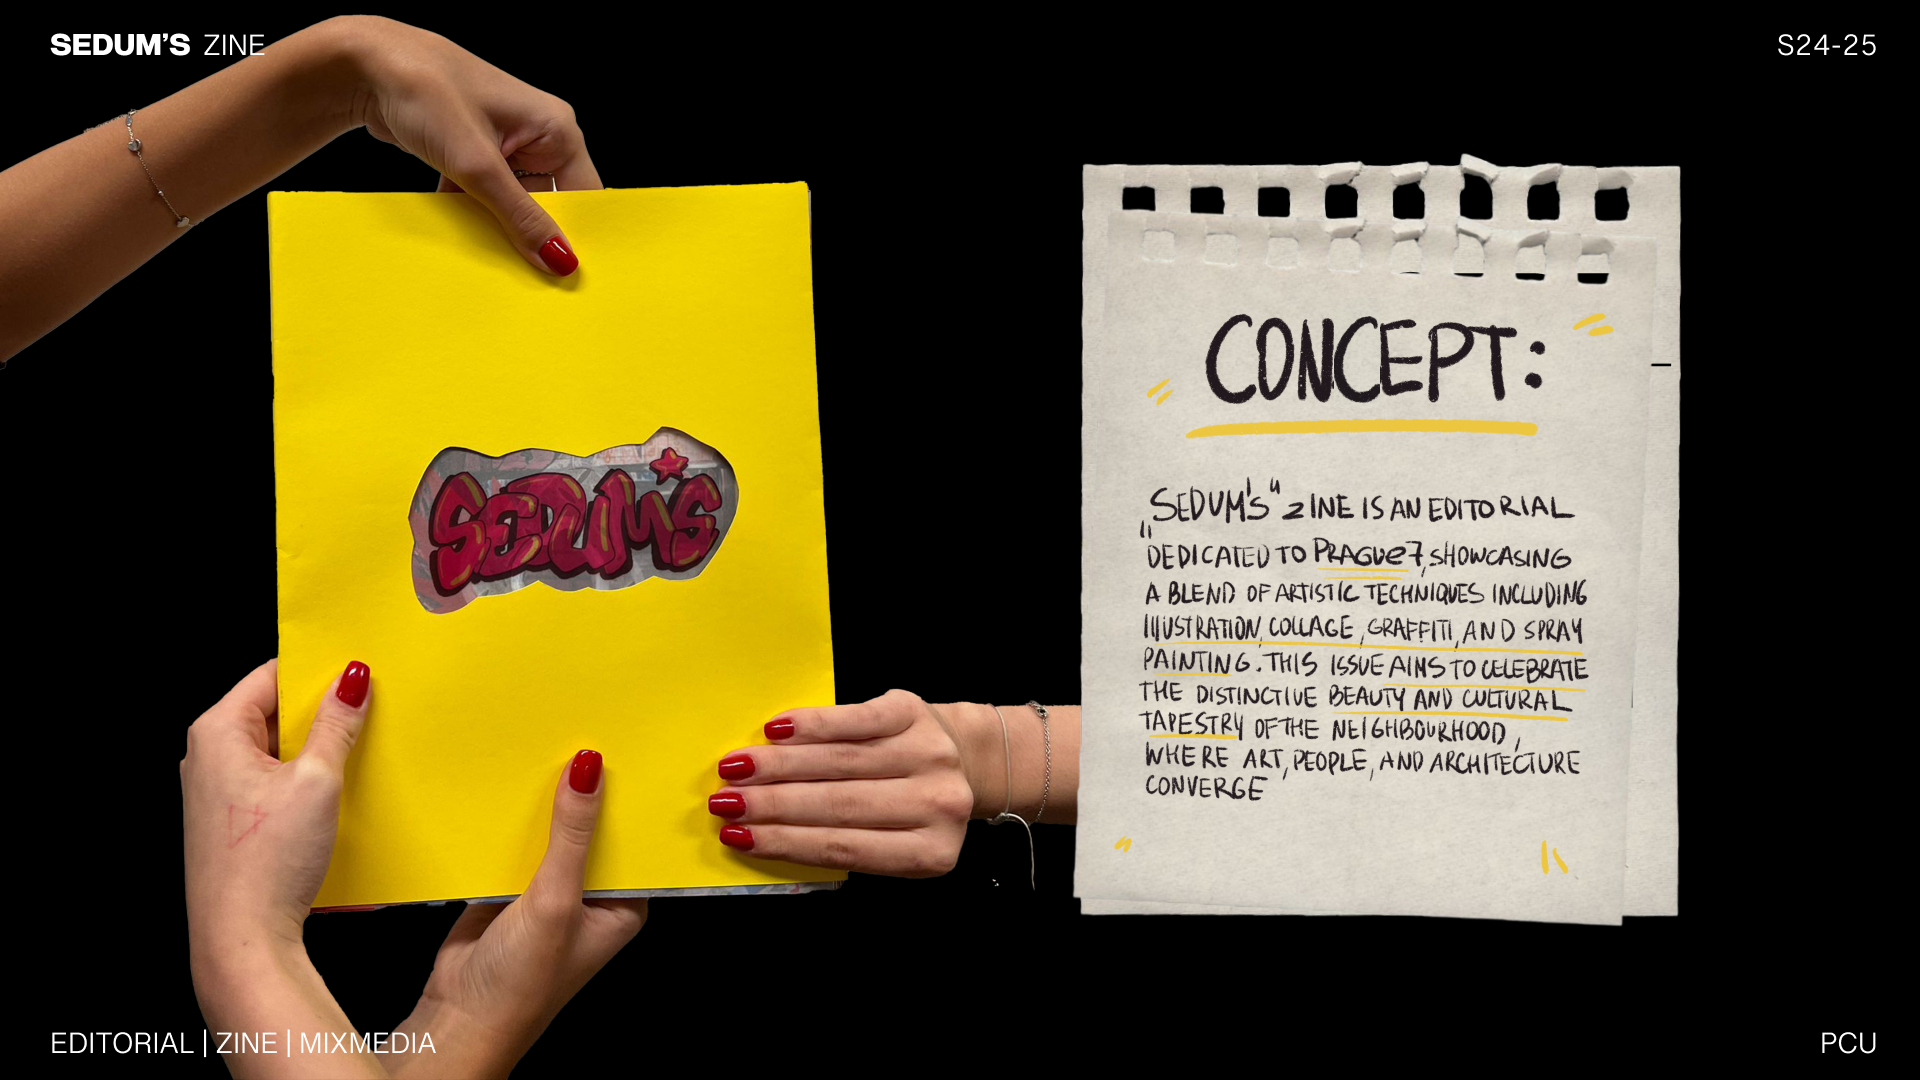 SEDUM'S ZINE
S24-25
SEDUM'S
CONCEPT:
"SEDUM'S" ZINE IS AN EDITORIAL
DEDICATED TO PRAGUE 7, SHOWCASING
A BLEND OF ARTISTIC TECHNIQUES INCLUDING
ILLUSTRATION, COLLAGE, GRAFFITI, AND SPRAY
PAINTING. THIS ISSUE AIMS TO CELEBRATE
THE DISTINCTIVE BEAUTY AND CULTURAL
TAPESTRY OF THE NEIGHBOURHOOD,
WHERE ART, PEOPLE, AND ARCHITECTURE
CONVERGE
EDITORIAL | ZINE | MIXMEDIA
PCU